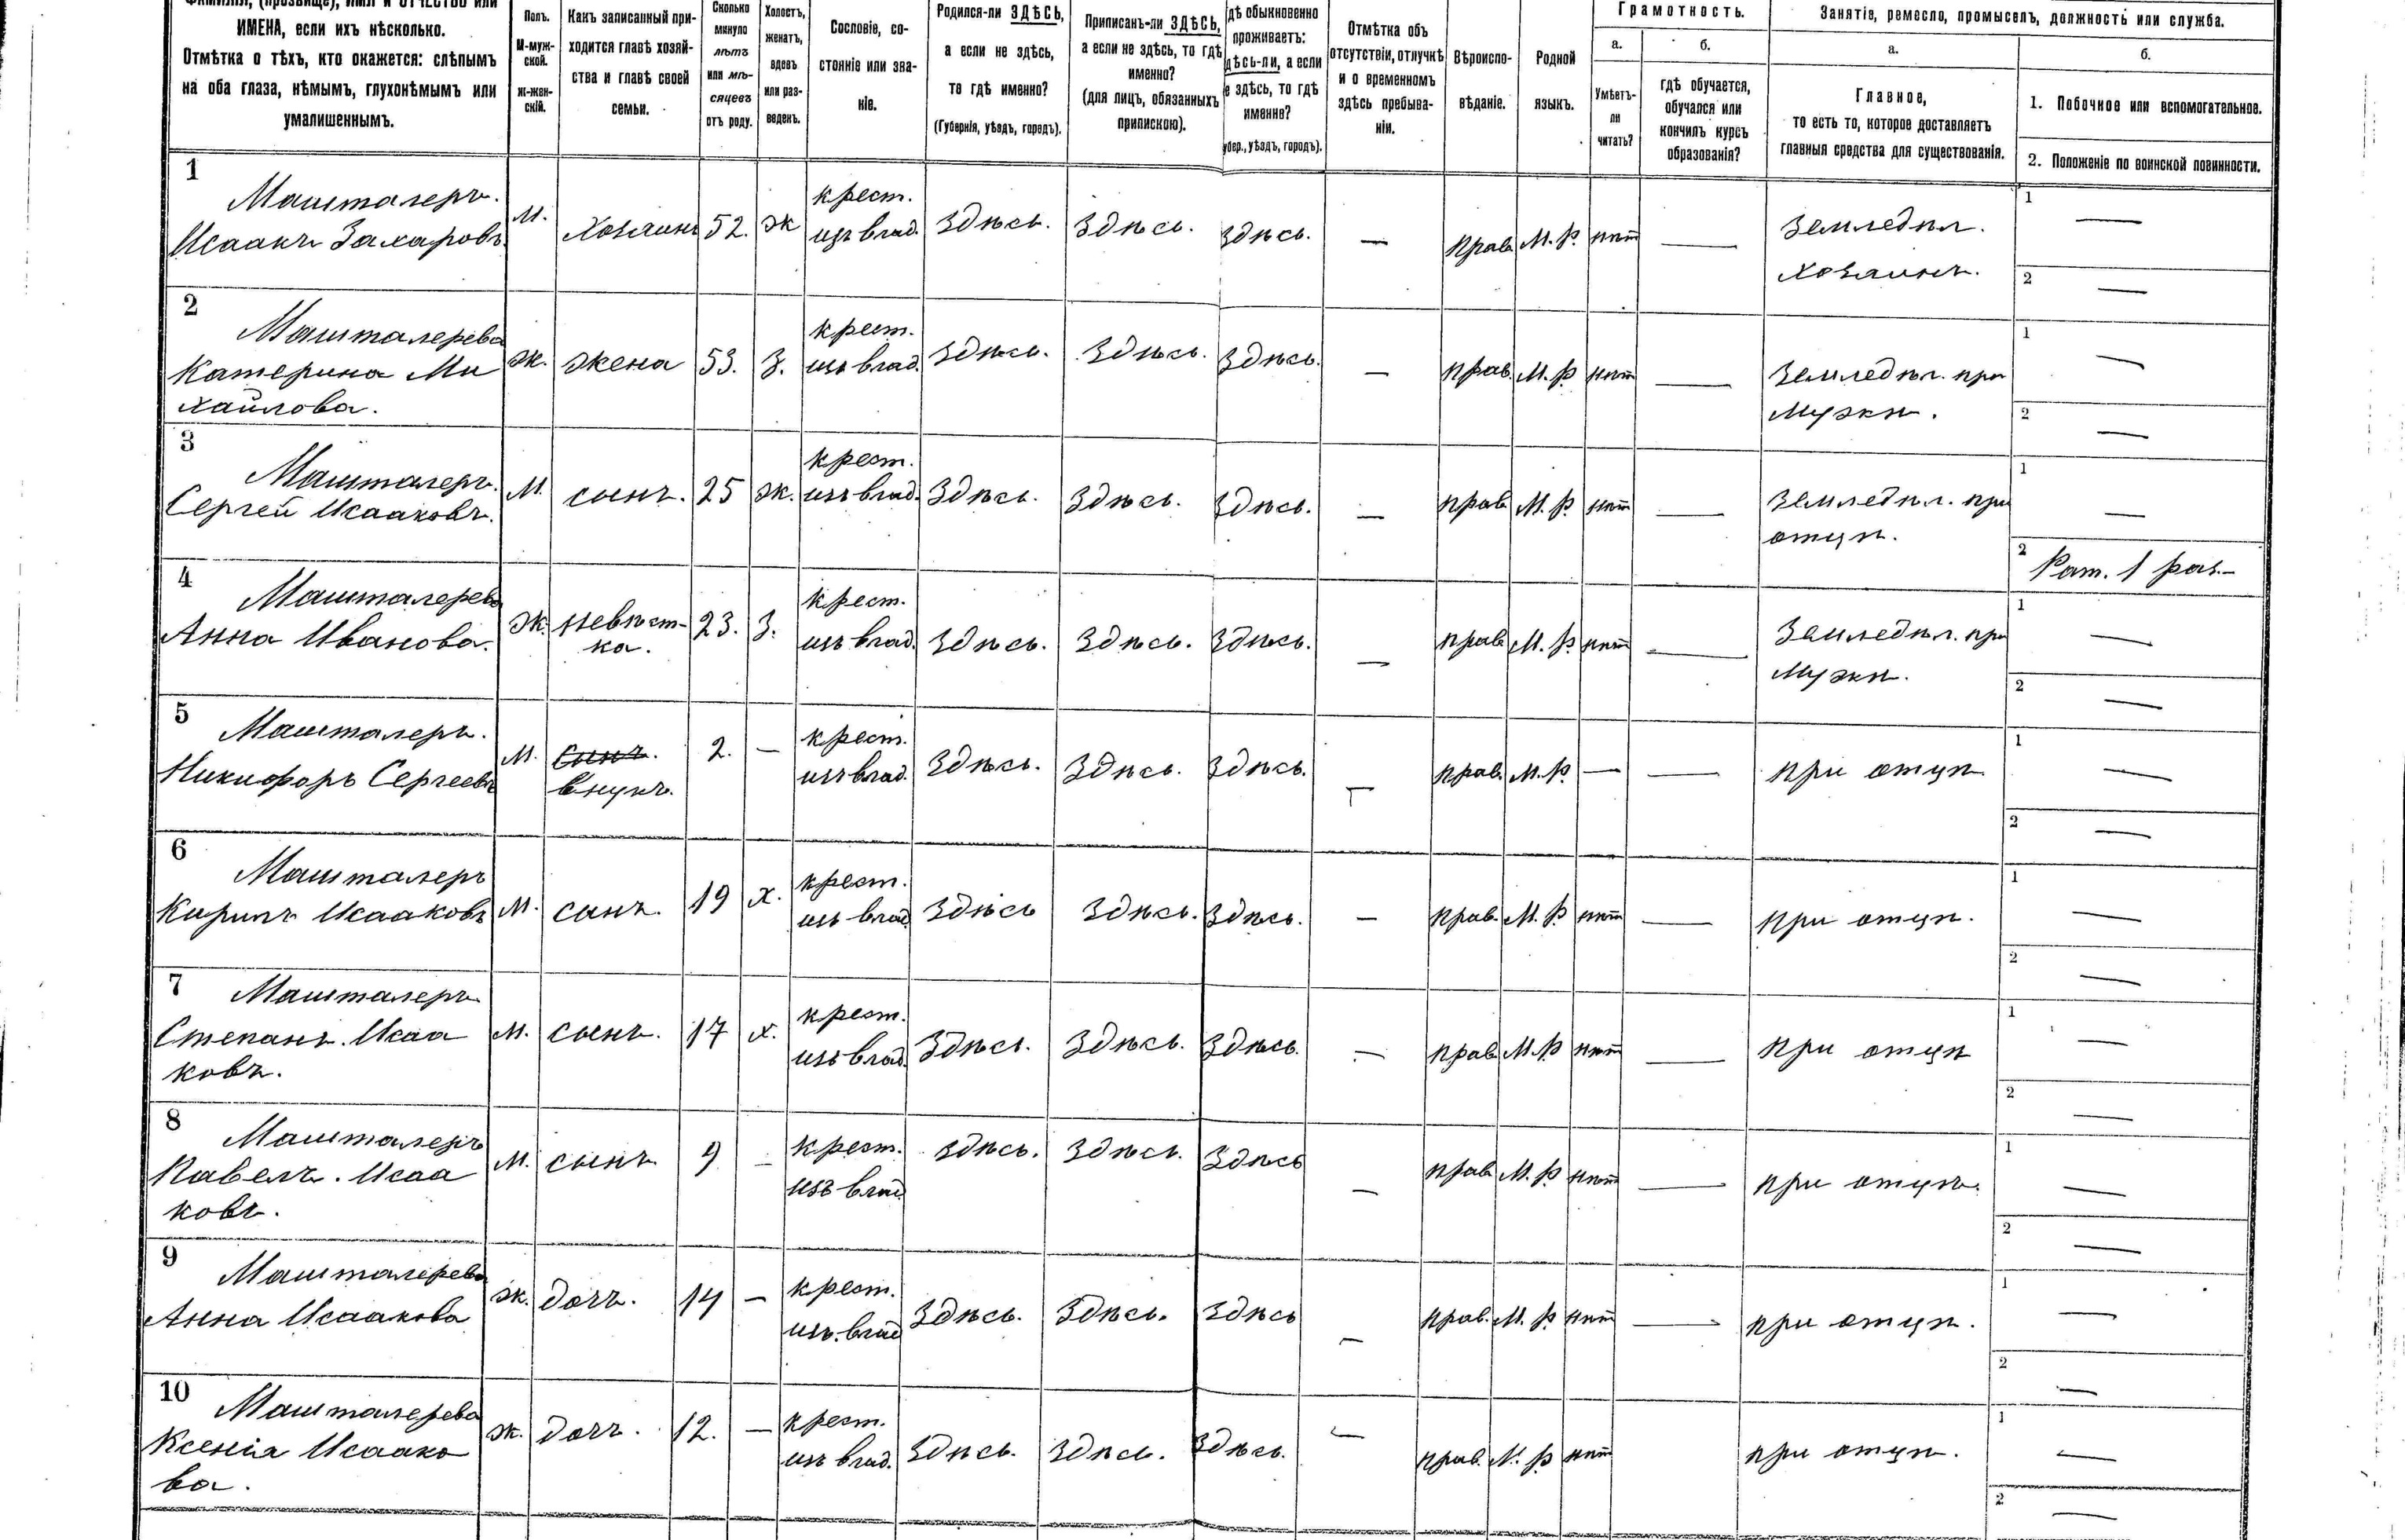 ФАМИЛІЯ, (прозвище), ИМЯ и ОТЧЕСТВО или
ИМЕНА, если ихъ нѣсколько.
Отмѣтка о тѣхъ, кто окажется: слѣпымъ
на оба глаза, нѣмымъ, глухонѣмымъ или
умалишеннымъ.
Полъ.
М-муж-
ской.
ж-жен-
скій.
Какъ записанный при-
ходится главѣ хозяй-
ства и главѣ своей
семьи.
Сколько
минуло
лѣтъ
или мѣ-
сяцевъ
отъ роду.
Холостъ,
женатъ,
вдовъ
или раз-
веденъ.
Сословіе, со-
стояніе или зва-
ніе.
Родился-ли ЗДѢСЬ,
а если не здѣсь,
то гдѣ именно?
(Губернія, уѣздъ, городъ).
Приписанъ-ли ЗДѢСЬ,
а если не здѣсь, то гдѣ
именно?
(для лицъ, обязанныхъ
припискою).
дѣ обыкновенно
проживаетъ:
дѣсь-ли, а если
е здѣсь, то гдѣ
именно?
убер., уѣздъ, городъ).
Отмѣтка объ
отсутствіи, отлучкѣ
и о временномъ
здѣсь пребыва-
ніи.
Вѣроиспо-
вѣданіе.
Родной
языкъ.
Грамотность.
а.
Умѣетъ-
ли
читать?
б.
гдѣ обучается,
обучался или
кончилъ курсъ
образованія?
Занятіе, ремесло, промыселъ, должность или служба.
а.
Главное,
то есть то, которое доставляетъ
главныя средства для существованія.
б.
1. Побочное или вспомогательное.
2. Положеніе по воинской повинности.
1
Машталеръ.
Исаакъ Захаровъ
М. Хозяинъ 52. ж
крест.
изъ влад.
Здѣсь. Здѣсь. Здѣсь. — Прав. М. Р. нѣтъ —
Земледѣл.
Хозяинъ.
1 —
2 —
2
Машталерева
Катерина Ми
хайлова.
ж. жена 53. З.
крест.
изъ влад.
Здѣсь. Здѣсь. Здѣсь. — прав. М. Р. нѣтъ —
Земледѣл. при
мужѣ.
1 —
2 —
3
Машталеръ.
Сергей Исааковъ.
М. сынъ. 25 ж.
крест.
изъ влад.
Здѣсь. Здѣсь. Здѣсь. — прав. М. Р. нѣтъ —
Земледѣл. при
отцѣ.
1 —
2 Рат. 1 раз.—
4
Машталерева
Анна Иванова.
ж. Невѣст-
ка.
23. З.
крест.
изъ влад.
Здѣсь. Здѣсь. Здѣсь. — прав. М. Р. нѣтъ —
Земледѣл. при
мужѣ.
1 —
2 —
5
Машталеръ.
Никифоръ Сергеевъ
М. сынъ.
внукъ.
2. —
крест.
изъ влад.
Здѣсь. Здѣсь. Здѣсь. — прав. М. Р. — —
при отцѣ
1 —
2 —
6
Машталеръ
Кирилъ Исааковъ
М. сынъ. 19 х.
крест.
изъ влад.
Здѣсь Здѣсь. Здѣсь. — прав. М. Р. нѣтъ —
при отцѣ.
1 —
2 —
7
Машталеръ
Степанъ. Исаа
ковъ.
М. сынъ. 17 х.
крест.
изъ влад.
Здѣсь. Здѣсь. Здѣсь. — прав. М. Р. нѣтъ —
при отцѣ
1 —
2 —
8
Машталеръ
Павелъ. Исаа
ковъ.
М. сынъ 9 —
крест.
изъ влад.
Здѣсь. Здѣсь. Здѣсь — прав. М. Р. нѣтъ —
при отцѣ.
1 —
2 —
9
Машталерева
Анна Исаакова
ж. дочь. 14 —
крест.
изъ. влад
Здѣсь. Здѣсь. Здѣсь — прав. М. Р. нѣтъ —
при отцѣ.
1 —
2 —
10
Машталерева
Ксенія Исаако
ва.
ж. дочь. 12. —
крест.
изъ влад.
Здѣсь. Здѣсь. Здѣсь. — прав. М. Р. нѣтъ
при отцѣ.
1 —
2 —